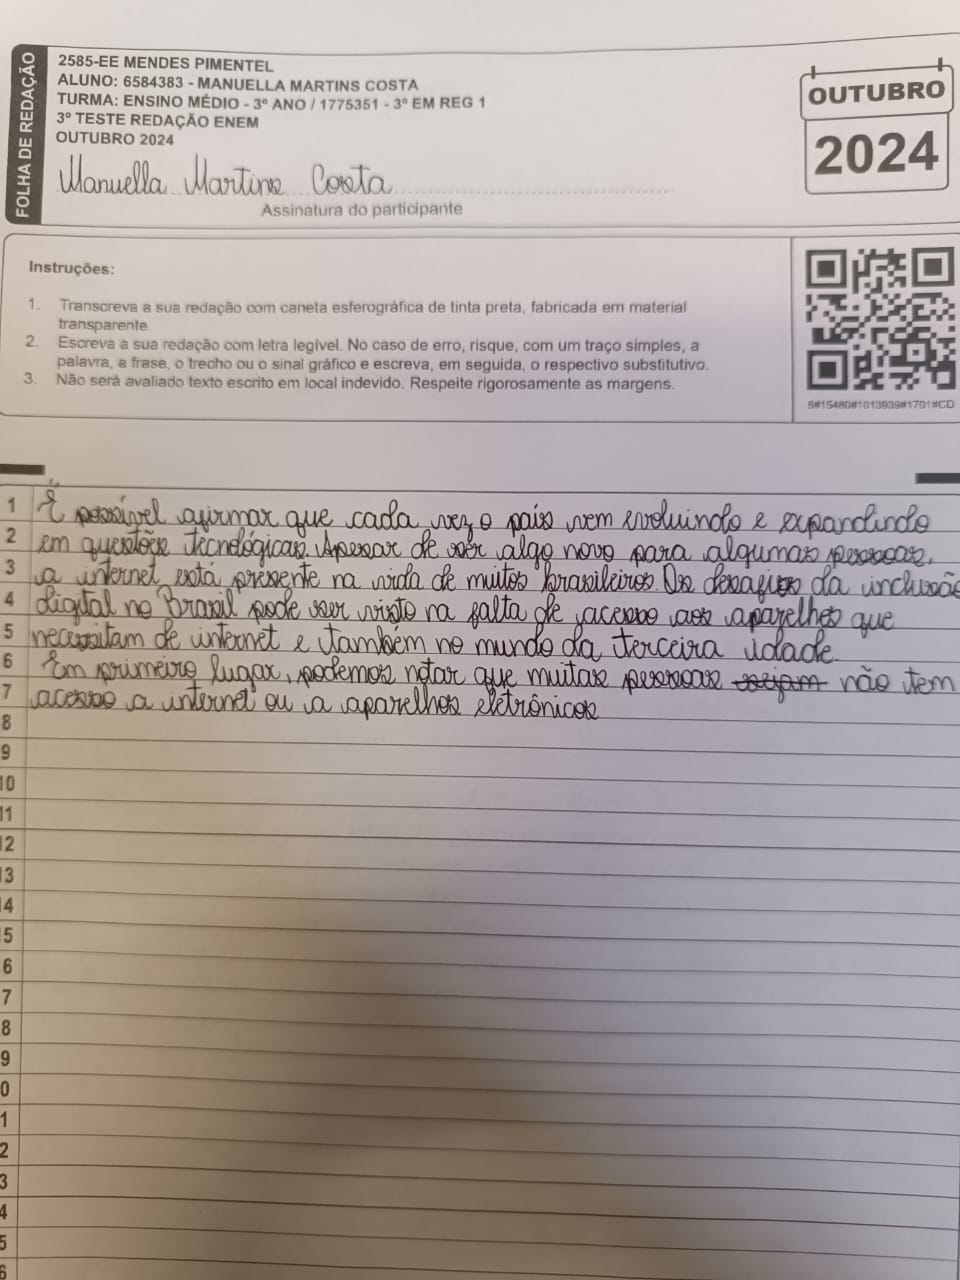 FOLHA DE REDAÇÃO
2585-EE MENDES PIMENTEL
ALUNO: 6584383 - MANUELLA MARTINS COSTA
TURMA: ENSINO MÉDIO - 3º ANO / 1775351 - 3º EM REG 1
3º TESTE REDAÇÃO ENEM
OUTUBRO 2024
Manuella Martins Costa
Assinatura do participante
OUTUBRO
2024
Instruções:
1. Transcreva a sua redação com caneta esferográfica de tinta preta, fabricada em material
transparente.
2. Escreva a sua redação com letra legível. No caso de erro, risque, com um traço simples, a
palavra, a frase, o trecho ou o sinal gráfico e escreva, em seguida, o respectivo substitutivo.
3. Não será avaliado texto escrito em local indevido. Respeite rigorosamente as margens.
6#15480#1013939#1701#CD
1 É possível afirmar que cada vez o país vem evoluindo e expandindo
2 em questões tecnológicas. Apesar de ser algo novo para algumas pessoas,
3 a internet está presente na vida de muitos brasileiros. Os desafios da inclusão
4 digital no Brasil pode ser visto na falta de acesso aos aparelhos que
5 necessitam de internet e também no mundo da terceira idade.
6 Em primeiro lugar, podemos notar que muitas pessoas sejam não tem
7 acesso a internet ou a aparelhos eletrônicos
8
9
10
11
12
13
14
15
6
7
8
9
0
1
2
3
4
5
6